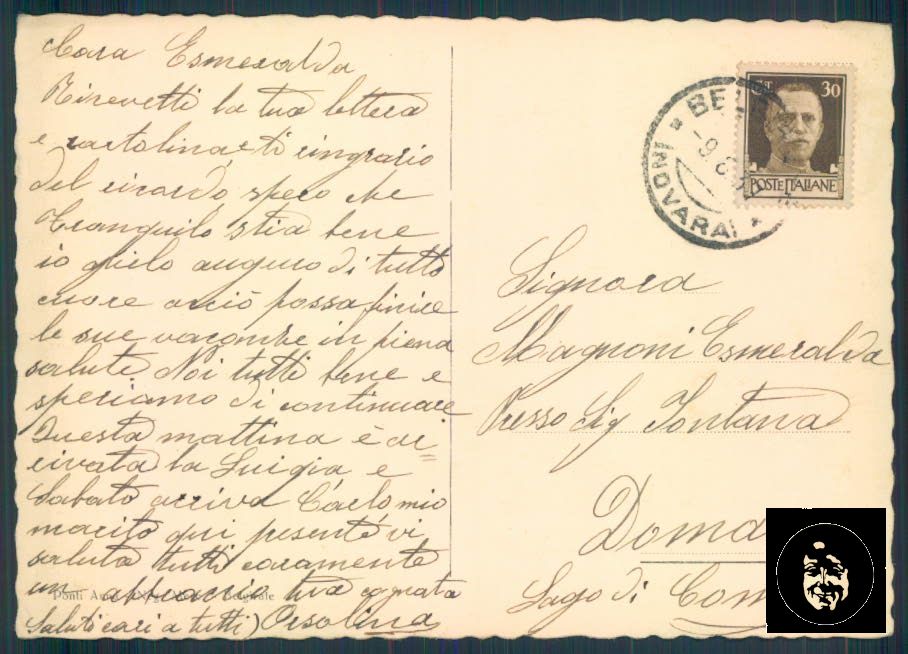 Cara Esmeralda
Ricevetti la tua lettera
e cartolina e ti ringrazio
del ricordo, spero che
Tranquilo stia bene
io glielo auguro di tutto
cuore acciò possa finire
le sue vacanze in piena
salute. Noi tutti bene e
speriamo di continuare
Questa mattina è ar=
rivata la Luigia e
Sabato arriva Carlo, mio
marito qui pesente vi
saluta tutti caramente
un abbraccio tua cognata
Saluti cari a tutti) Orsolina
Ponti
BEL
-9 8
(NOVARA)
CT. 30
POSTE ITALIANE
Signora
Magnoni Esmeralda
Presso Sig Fontana
Doma
Lago di Com